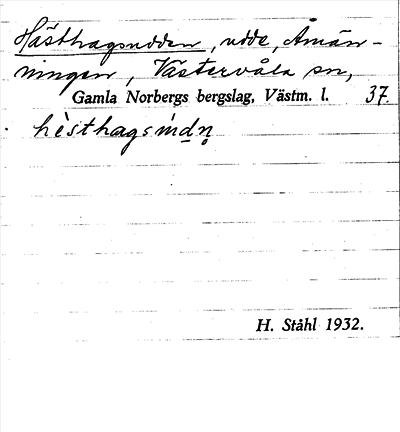 Hästhagsudden, udde, Åmän-
ningen, Västervåla sn,
Gamla Norbergs bergslag, Västm. l. 37.
hèsthagsúdn̥
H. Ståhl 1932.